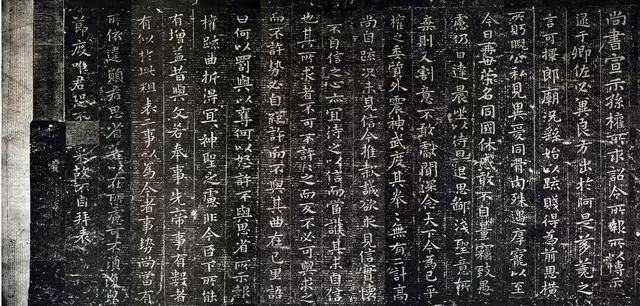 尚書宣示孫權所求詔令所報所以博示
逮于卿佐必冀良方出於阿是芻蕘之
言可擇郎廟況繇始以疏賤得為前恩橫
所眄睨公私見異愛同骨肉殊遇厚寵以至
今日再世榮名同國休慼敢不自量竊致愚
慮仍日達晨坐以待旦退思鄙淺聖意所
棄則又割意不敢獻聞深念天下今為已平
權之委質外震神武度其拳〃無有二計高
尚自疏況未見信今推款誠欲求見信實懷
不自信之心亦宜待之以信而當護其未自信
也其所求者不可不許許之而反不必可與求之
而不許勢必自絕許而不與其曲在己里語
曰何以罰與以奪何以怒許不與思省所示報
權疏曲折得宜〃神聖之慮非今臣下所能
有增益昔與文若奉事先帝事有數者
有似於此粗表二事以為今者事勢尚當有
所依違願君思省若以在所慮可不須復貌
節度唯君恐不采故不自拜表